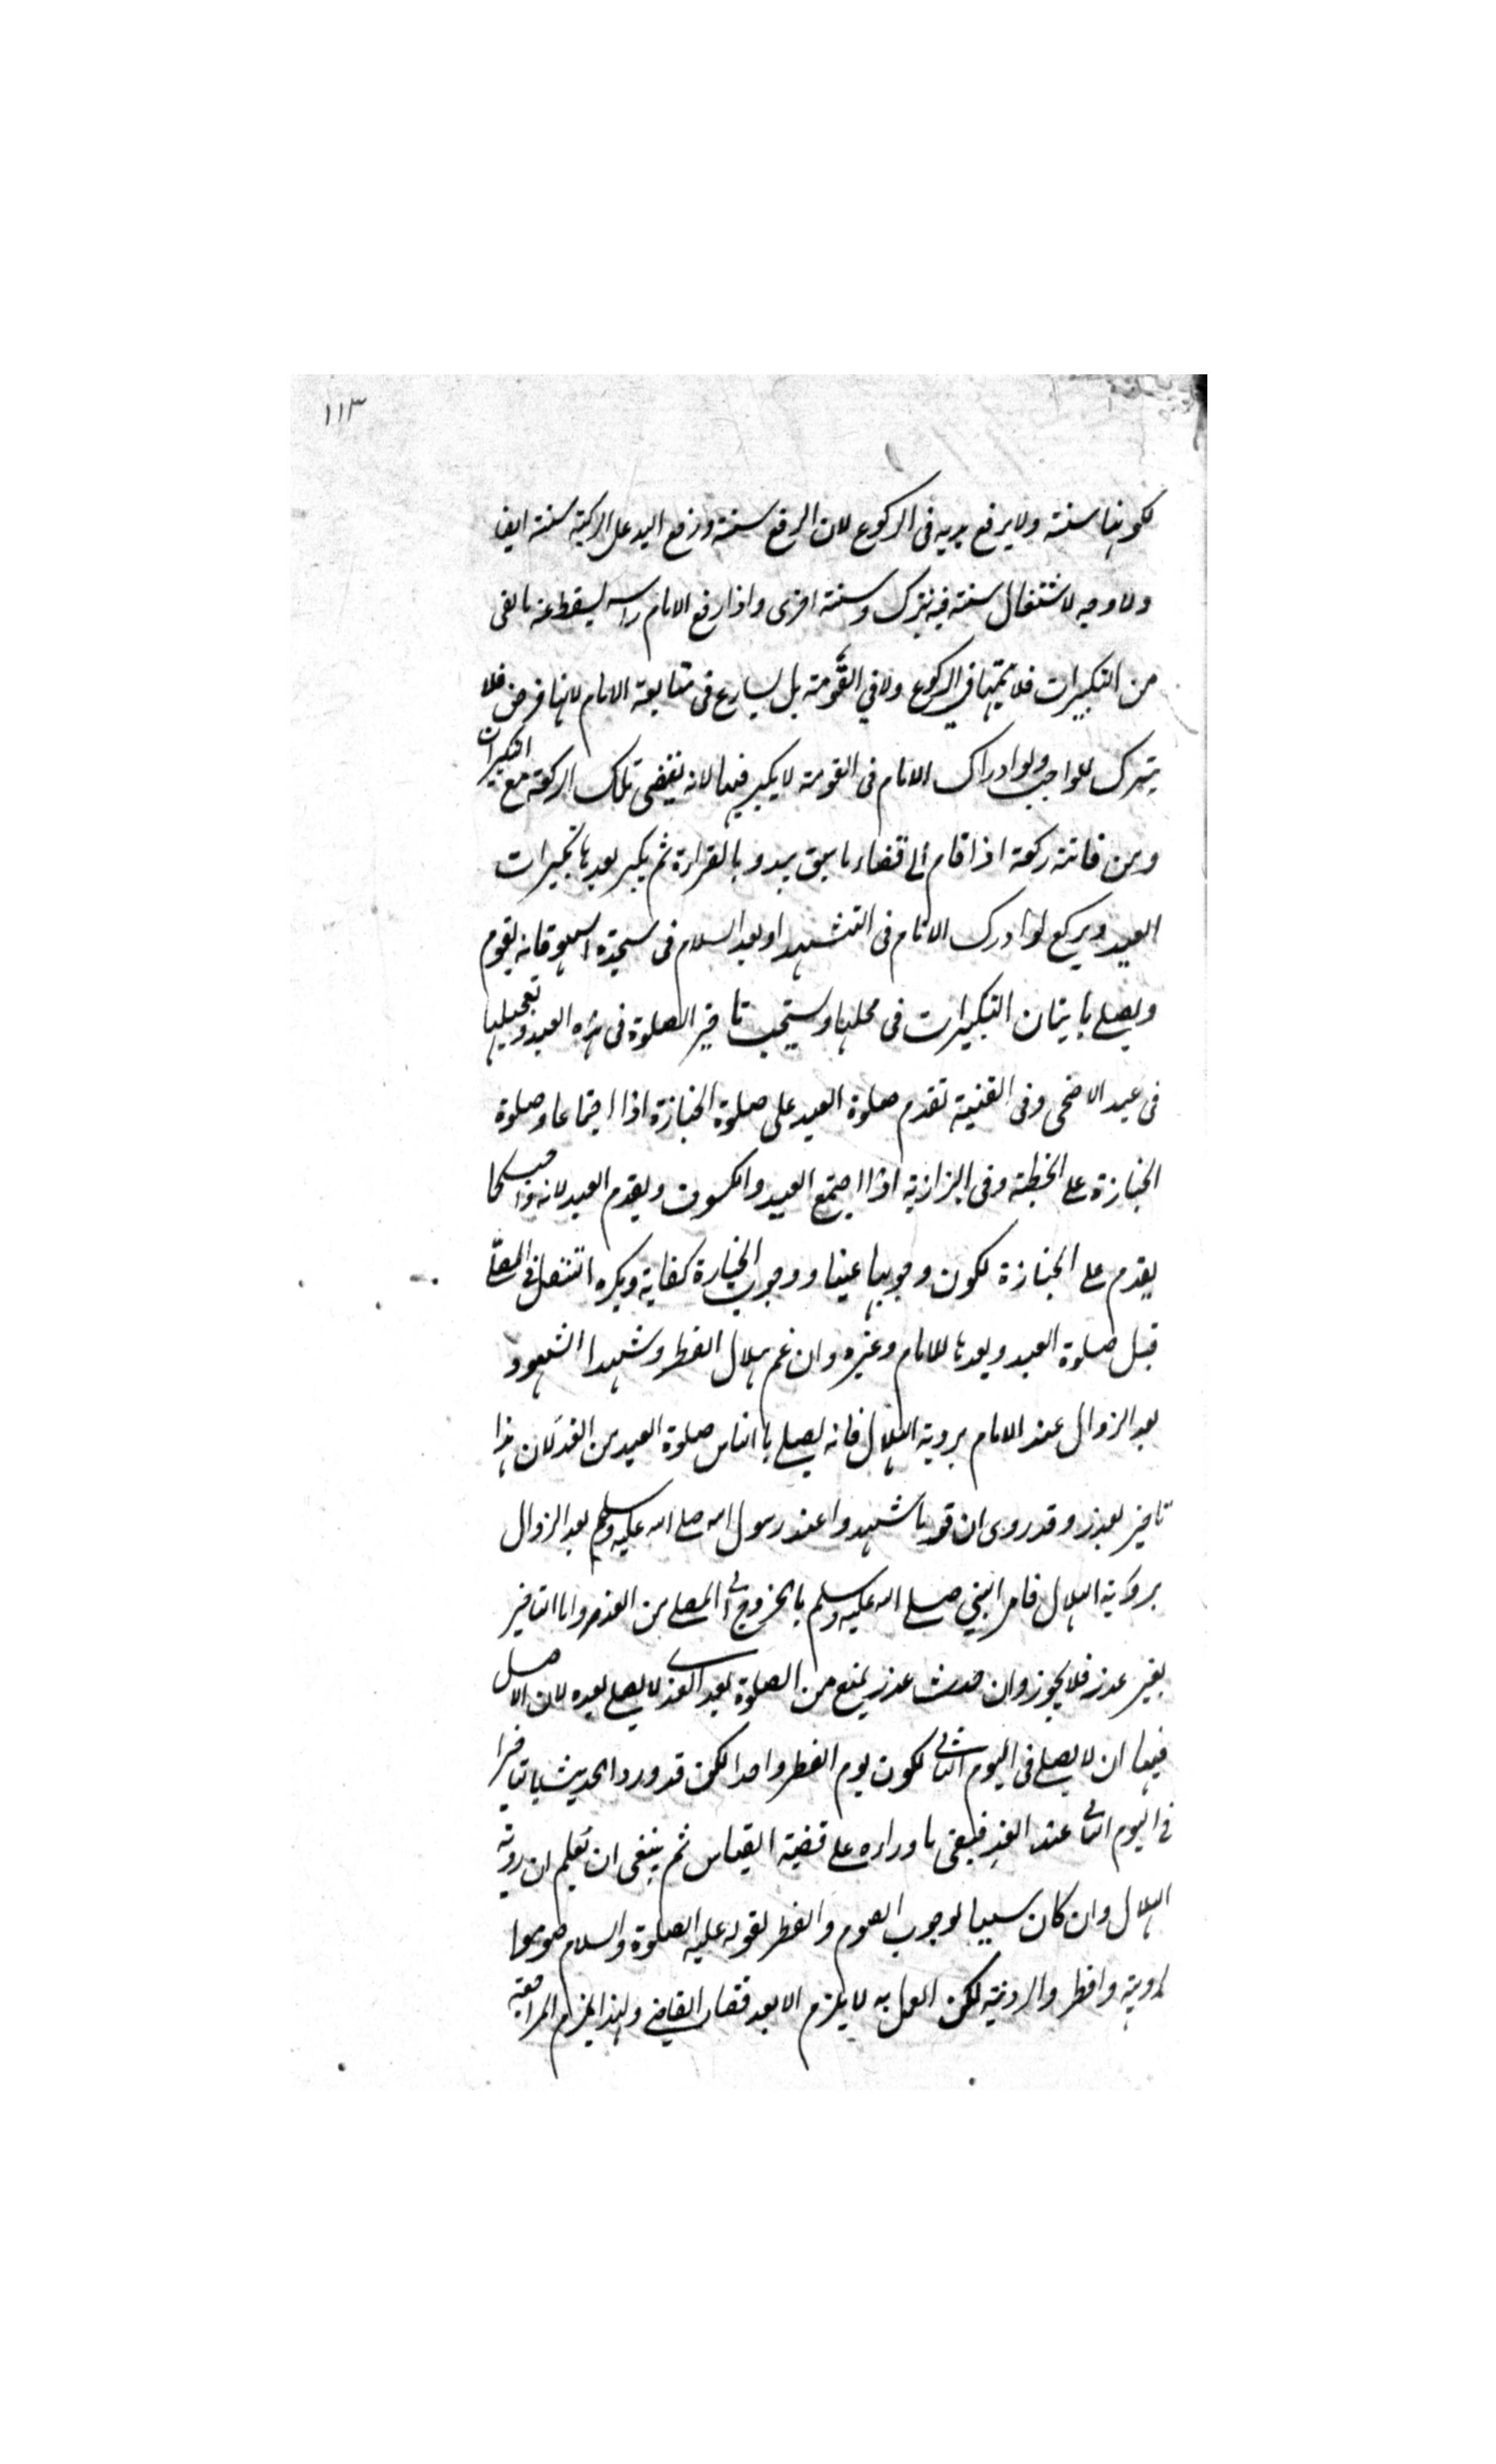 ١١٣
لكونها سنة ولا يرفع يديه فى الركوع لان الرفع سنة ووضع اليد على الركبة سنة ايضا
ولا وجه لاشتغال سنة فيه بترك سنة اخرى واذا رفع الامام راسه يسقط عنه ما بقى
من التكبيرات فلا يتمها في الركوع ولا في القومة بل يسارع فى متابعة الامام لانها فرض فلا
يترك للواجب ولو ادراك الامام فى القومة لا يكبر فيها لانه يقضى تلك الركعة مع التكبيرات
ومن فاتته ركعة اذا قام الى قضاء ما سبق يبدو بالقراءة ثم يكبر بعدها تكبيرات
العيد ويركع لو ادرك الامام فى التشهد او بعد السلام فى سجدة السهو فانه يقوم
ويصلى باتيان التكبيرات فى محلها ويستحب تاخير الصلوة فى هذه العيد وتعجيلها
فى عيد الاضحى وفى القنية تقدم صلوة العيد على صلوة الجنازة اذا اجتماعا وصلوة
الجنازة على الخطبة وفى البزازية اذا اجتمع العيد والكسوف ويقدم العيد لانه واجب كما
يقدم على الجنازة لكون وجوبها عينا ووجوب الجنازة كفاية ويكره التنفل فى المصلى
قبل صلوة العيد وبعدها للامام وغيره وان غم هلال الفطر وشهدا الشهود
بعد الزوال عند الامام بروية الهلال فانه يصلى باالناس صلوة العيد من الغد لان هذا
تاخير بعذر وقد روى ان قوما شهدوا عند رسول الله صلى الله عليه وسلم بعد الزوال
بروية الهلال فامر النبي صلى الله عليه وسلم بالخروج الى المصلى من الغد واما التاخير
بغير عذر فلا يجوز وان حدث عذر يمنع من الصلوة بعد الغد لا يصلى بعده لان الاصل
فيها ان لا يصلى فى اليوم الثانى لكون يوم الفطر واحدا لكن قد ورد الحديث بتاخيرها
فى اليوم الثانى عند العذر فبقى ما وراءه على قضية القياس ثم ينبغى ان يعلم ان روية
الهلال وان كان سببا لوجوب الصوم والفطر لقوله عليه الصلوة والسلام صوموا
لرويته وافطروا لرويته لكن العمل به لا يلزم الا بعد قضاء القاضى ولهذا يلزم المرافعة